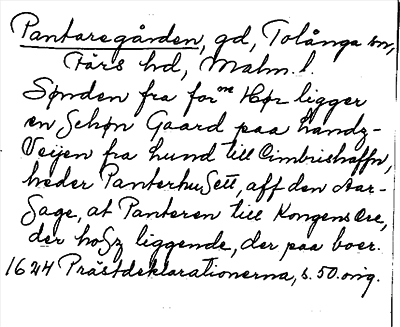 Pantaregården, gd, Tolånga sn,
Färs hd, Malm. l.
Sønden fra for^me Hør ligger
en Schøn Gaard paa Landz-
Veijen fra Lund till Cimbrishaffn,
heder PanterhuSett, aff den Aar-
Sage, at Panteren till Kongens Øre,
der hoSz liggende, der paa boer.
1624 Prästdeklarationerna, s. 50. orig.